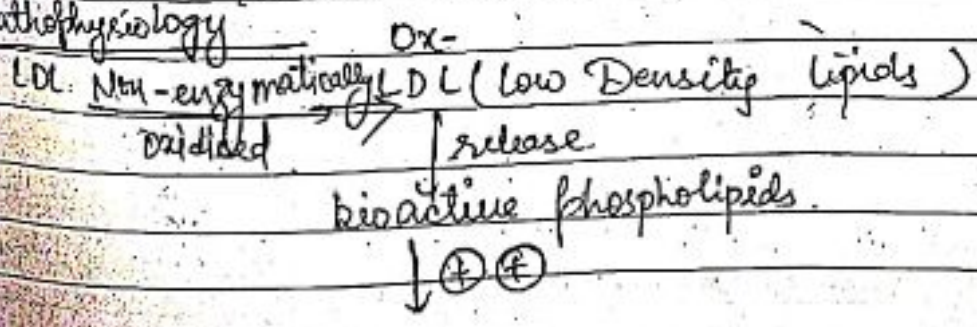 athophysiology
Ox-
LDL Non-enzymatically LDL (Low Density lipids)
oxidised
release
bioactive phospholipids.
↓ ⊕ ⊕